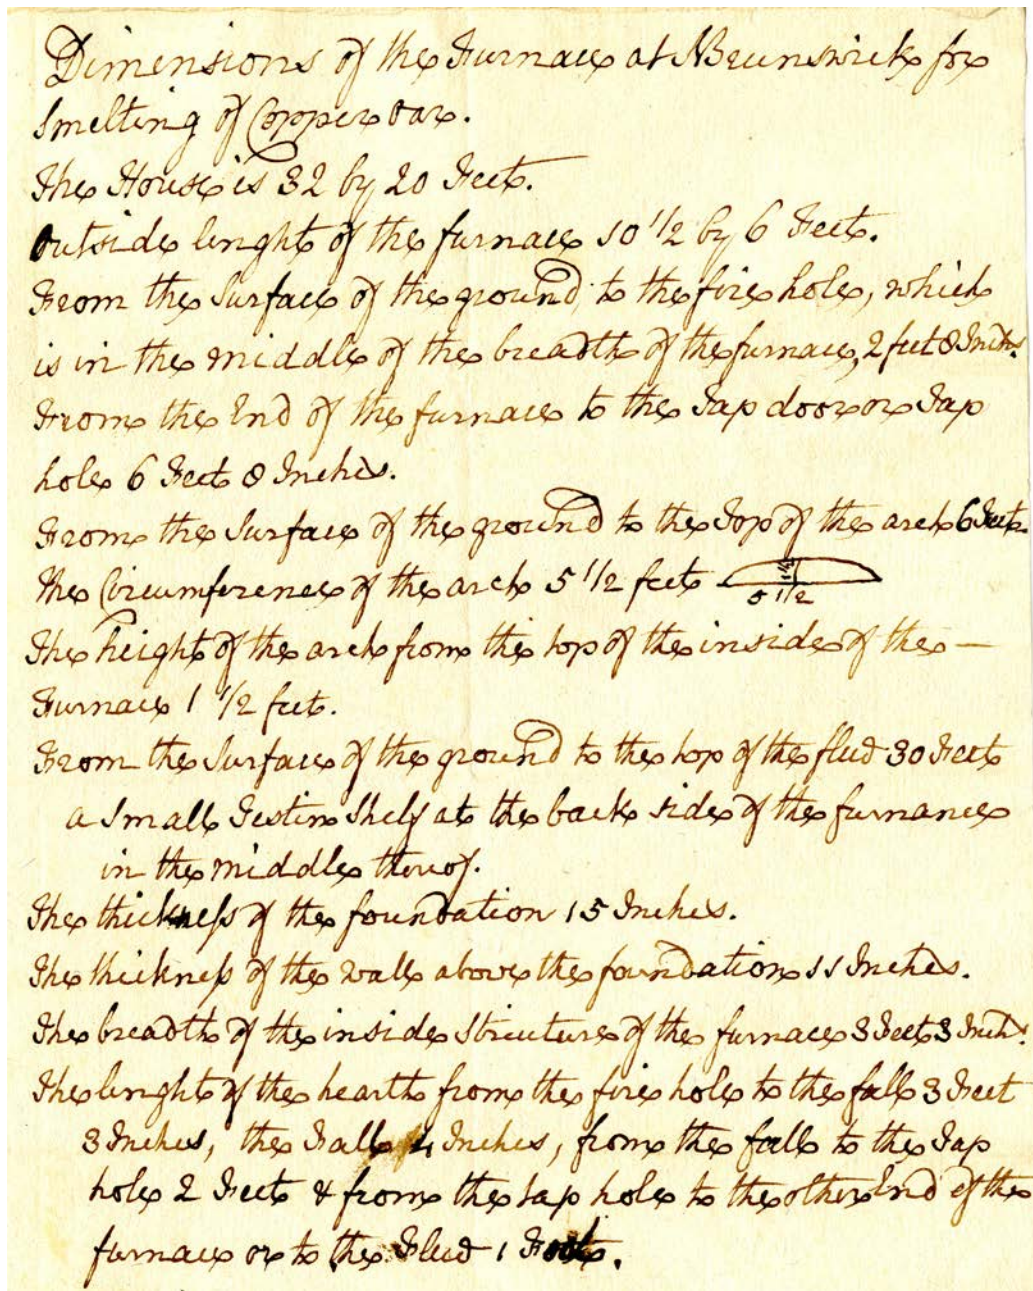 Dimensions of the Furnace at NBrunswick for
Smelting of Copper oar.
The House is 32 by 20 Feet.
Outside lenght of the furnace 10 1/2 by 6 Feet.
From the Surface of the ground, to the fire hole, which
is in the middle of the breadth of the furnace, 2 feet 8 Inch.s
From the End of the furnace to the Tap door or Tap
hole 6 Feet 8 Inches.
From the Surface of the ground to the Top of the arch 6 Feet.
the Circumference of the arch 5 1/2 feet
1 1/2
5 1/2
The height of the arch from the top of the inside of the —
Furnace 1 1/2 feet.
From the Surface of the ground to the top of the flud 30 Feet
a Small Shelf at the back side of the furnance
in the middle thereof.
The thickness of the foundation 15 Inches.
The thickness of the wall above the foundation 11 Inches.
The breadth of the inside Structure of the furnace 3 Feet 3 Inch.s
The lenght of the hearth from the fire hole to the fall 3 Feet
3 Inches, the Fall 4 Inches, from the fall to the Tap
hole 2 Feet & from the tap hole to the other End of the
furnace or to the Flud 1 Foot.